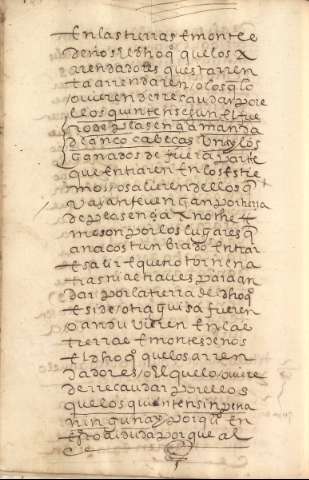 en las tierras e montes
de nos el dho q̃ que los
arrendadores que esta ren
ta arrendaren / o los q̃ lo
ouieren de rrecaudar por e
llos quinten segun el fue
ro de plasençia manda
de çinco cabeças los
ganados de fuera parte
que entraren en los estre
mos o salieren dellos q̃
vayan e vengan por
de plasençia
por los lugares q̃
an acostunbrado entrar
e salir e que no tornen a
tras ni atraues para an
dar por la tierra del dho q̃
e si de otra guisa fueren
o anduuieren en las
tierras e montes de nos
el dho q̃ que los arren
dadores / o el que lo ouiere
de rrecaudar por ellos
que los quinten sin pena
ninguna / y porq̃ en
esto ai duda porque al